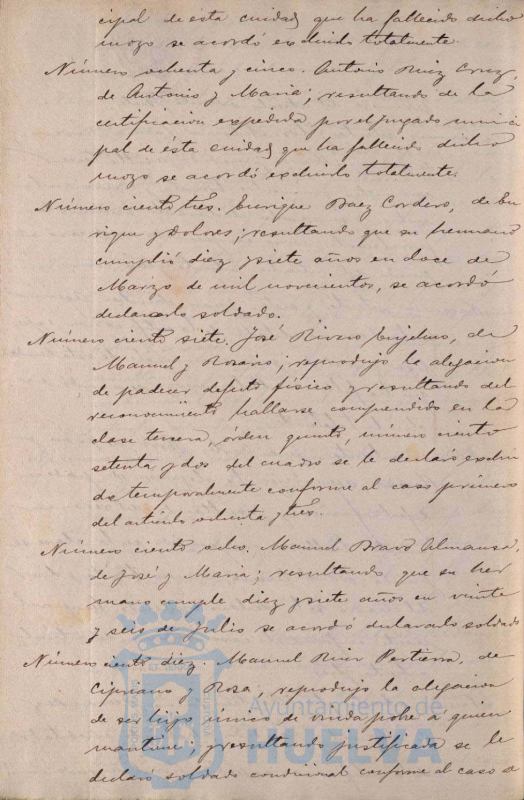 cipal de ésta ciudad que ha fallecido dicho
mozo se acordó excluirlo totalmente.
Número ochenta y cinco. Antonio Ruiz Cruz,
de Antonio y Maria; resultando de la
certificacion expedida por el juzgado munici
pal de ésta ciudad que ha fallecido dicho
mozo se acordó excluirlo totalmente.
Número ciento tres. Enrique Baez Cordero, de En
rique y Dolores; resultando que su hermano
cumplió diez y siete años en doce de
Marzo de mil novecientos, se acordó
declararlo soldado.
Número ciento siete. José Rivero, de
Manuel y Rosario; reprodujo la alegacion
de padecer defecto físico y resultando del
reconocimiento hallarse comprendido en la
clase tercera, órden quinto, número ciento
setenta y dos del cuadro se le declaró exclui
do temporalmente conforme al caso primero
del artículo ochenta y tres.
Número ciento ocho. Manuel Bravo Almansa,
de José y Maria; resultando que su her
mano cumple diez y siete años en veinte
y seis de Julio se acordó declararlo soldado
Número ciento diez. Manuel, de
Cipriano y Rosa, reprodujo la alegacion
de ser hijo unico de viuda pobre a quien
mantiene; y resultando justificada se le
declaró soldado condicional conforme al caso
Ayuntamiento de
HUELVA